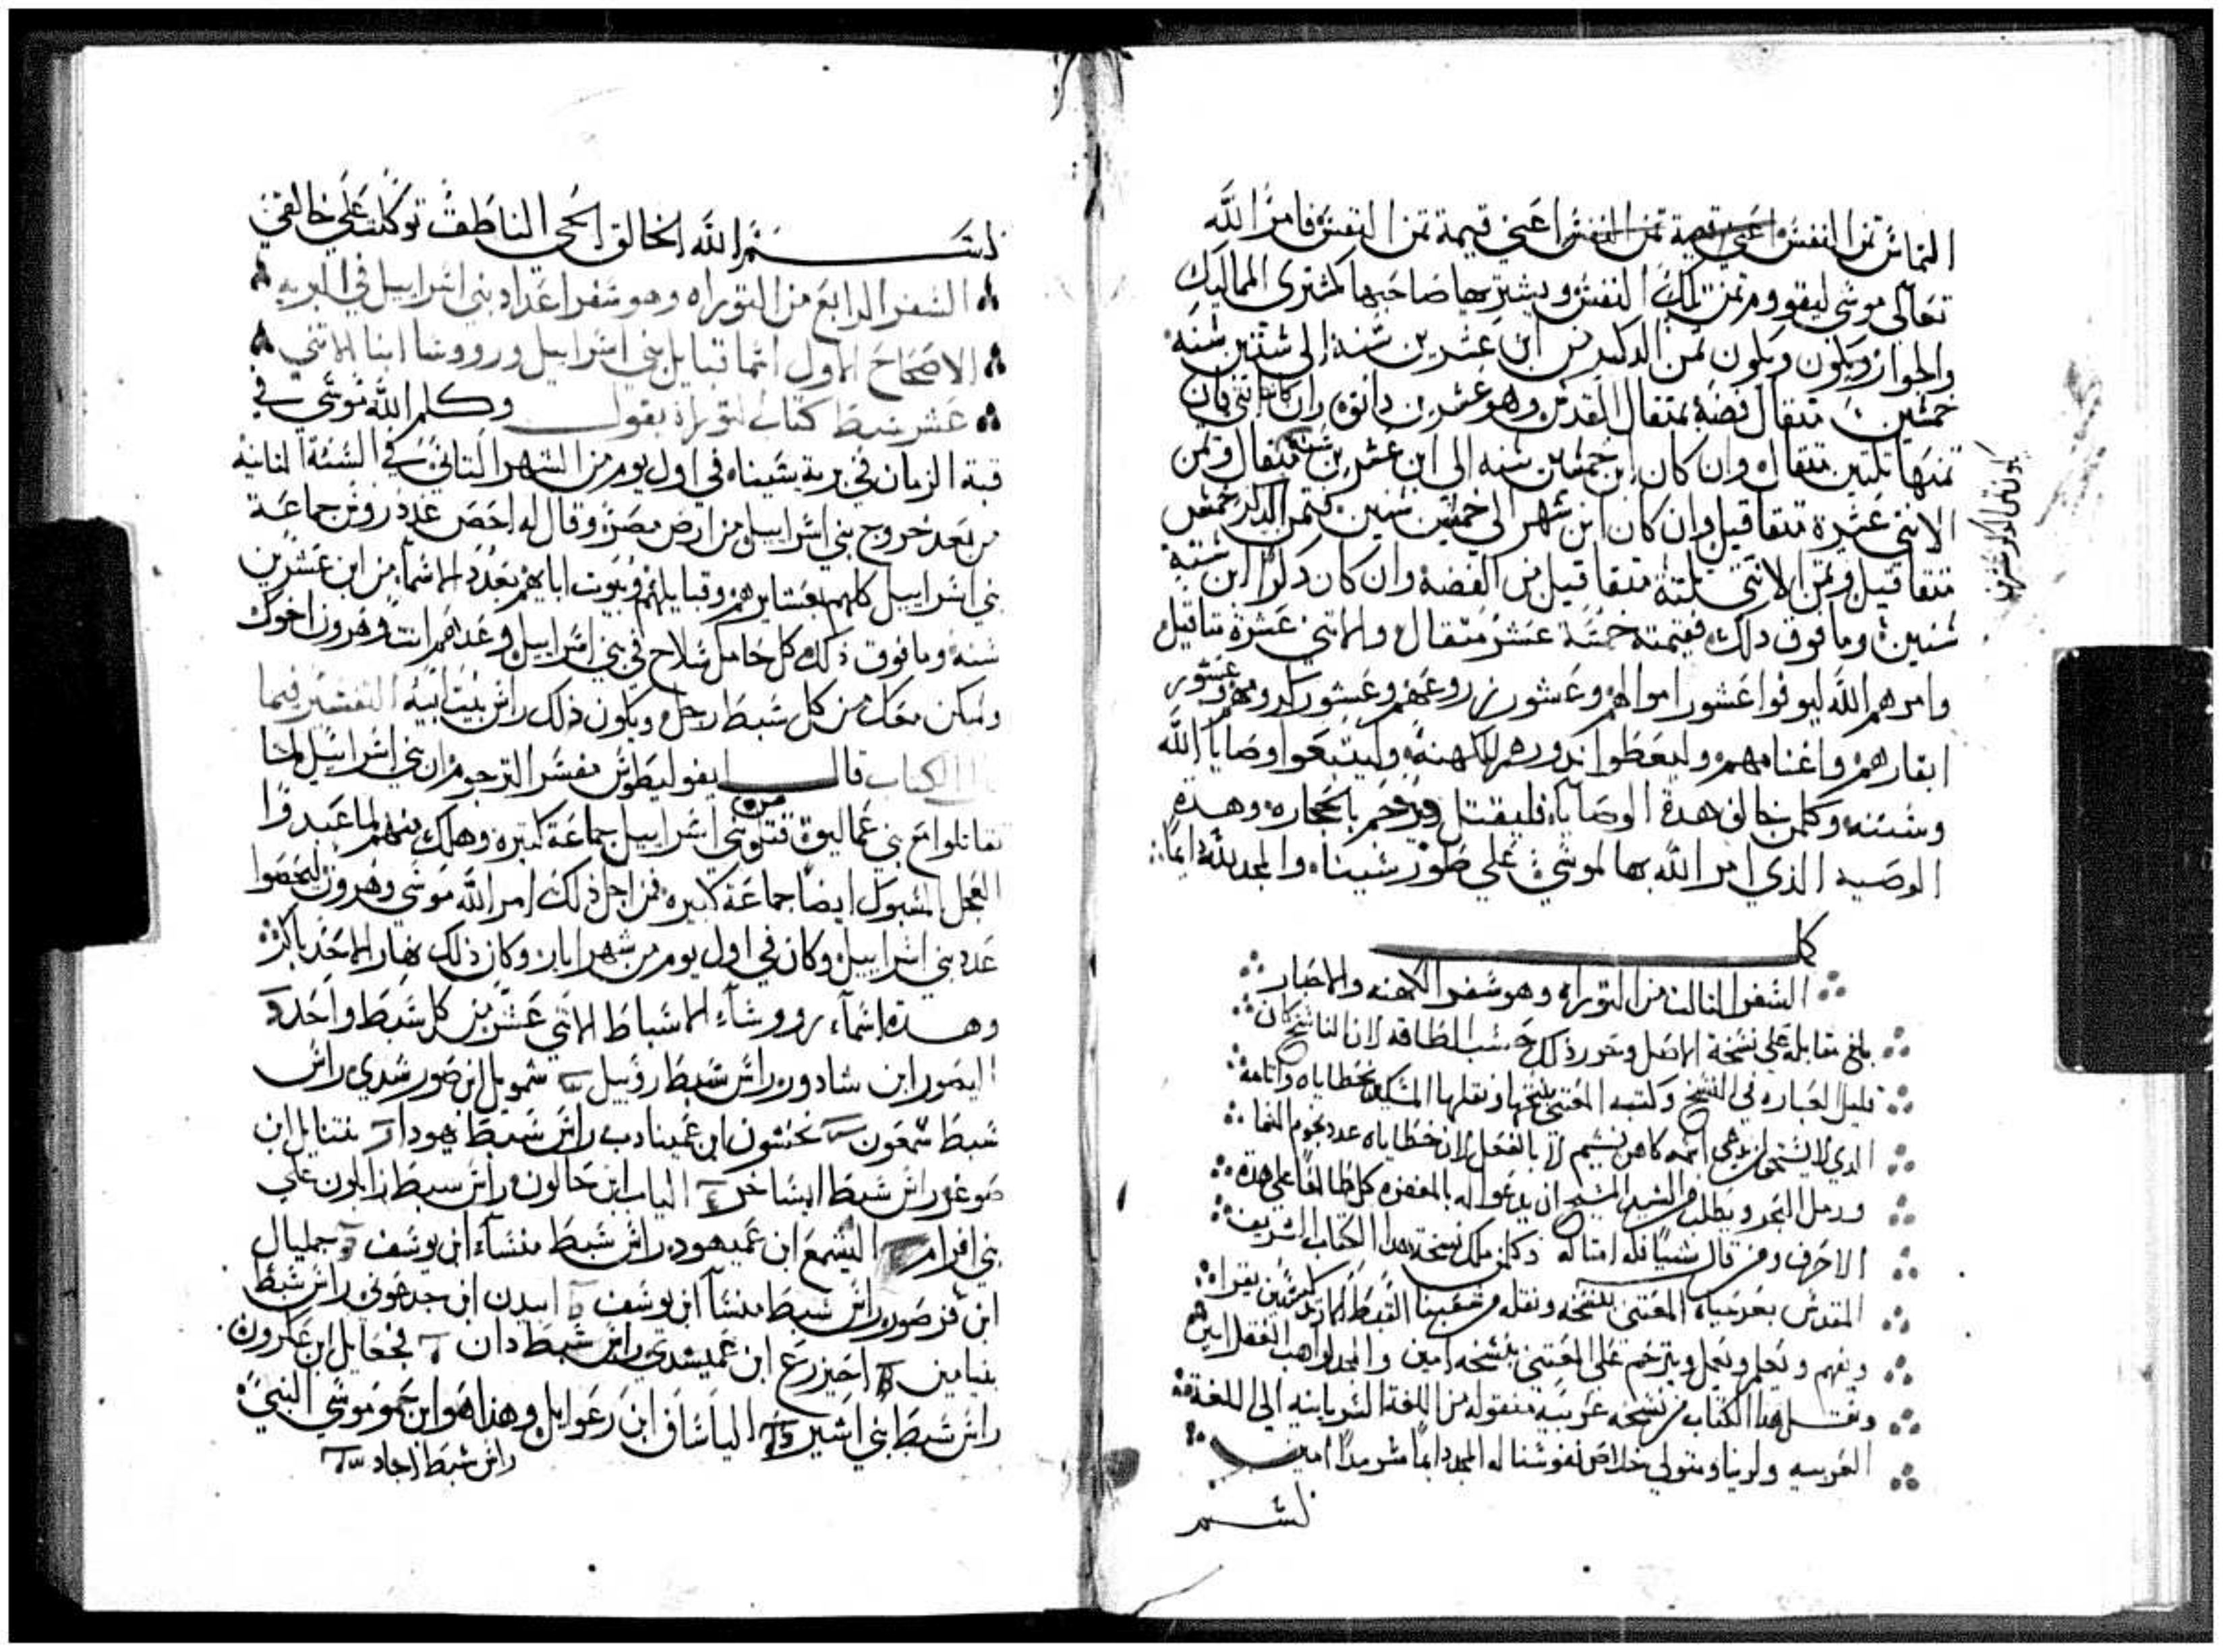 التماس ثمن النفس اعني قيمة ثمن النفس اعني قيمة ثمن النفس فامر الله
تعالى موسى ليقوموا ثمن تلك النفس ويشتريها صاحبها كمشتري المماليك
والجوار ويكون ويكون ثمن الدكر من ابن عشرين سنة الى ستين سنه
خمسين متقال فضة بمتقال القدس وهو عشرين دانق وان كانت انتى فان
تمنها تلتين متقال وان كان ابن خمسين سنه الى ابن عشرين سنة متقال وثمن
الانتى عشرة متقاقيل وان كان ابن شهر الى خمس سنين فتمن الدكر خمس
متقاقيل وتمن الانتى تلتة متقاقيل من الفضة وان كان دكرا ابن ستة
سنين وما فوق دلك فقيمته خمسة عشر متقال والانتى عشرة متاقيل
وامرهم الله ليوفوا عشور اموالهم وعشور زروعهم وعشور كرومهم وعشور
ابقارهم واغنامهم وليعطوا ندورهم للكهنة وليتبعوا وصايا الله
وسننه وكلمن خالف هدة الوصايا فليقتل ويرجم بالحجاره وهده
الوصيه الذي امر الله بها لموسى على طور سيناه والمجد لله دايما
كمل
السفر التالت من التوراه وهو سفر الكهنه والاحبار
بلغ مقابله على نسخة الاصل وحرر ذلك حسب الطاقه لان الناسخ كان
قليل العباره في النسخ وكتبه المعتني بنسخها ونقلها المسكين بخطاياه واتامه
الدي لا يستحق ان يدعى اسمه كاهن بقسيم لا بالفعل لان خطاياه عدد نجوم السما
ورمل البحر ويطلب من السيد المسيح ان يدعوا له بالمغفره كل طالعا على هدة
الاحرف ومن قال شيا فله امتاله وكلمن ملك نسخة هدا الكتاب الشريف
المقدس بعد حياة المعتني بنسخه ونقله من شعبنا القبط الارتدكسيين يقرا
ويفهم ويعلم ويعمل ويترحم على المعتني بنسخه امين والمجد لواهب العقل امين
ونقل هدا الكتاب من نسخه عربيه منقوله من اللغة السريانيه الى اللغة
العربيه ولربنا ومتولي خلاص نفوسنا له المجد دايما سرمدا امين
بسم
بسم الله الخالق الحي الناطق توكلت على خالقي
السفر الرابع من التوراه وهو سفر اعداد بني اسراييل في البريه
الاصحاح الاول اسما قبايل بني اسراييل ورووسا ابنا الاتني
عشر سبط كتاب التوراة يقول وكلم الله موسى في
قبة الزمان في برية سيناه في اول يوم من الشهر التاني في السنة التانية
من بعد خروج بني اسراييل من ارض مصر وقال له احصى عدد رووس جماعة
بني اسراييل كلهم بعشايرهم وقبايلهم وبيوت ابايهم بعدد الاسماء من ابن عشرين
سنة وما فوق ذلك كل حامل سلاح في بني اسراييل وعدهم انت وهرون اخوك
وليكن معك من كل سبط رجل ويكون ذلك راس بيت ابيه التفسير فيما
الكتاب قال ايفوليطوس مفسر الترجوم ان بني اسراييل لما
تقاتلوا مع بني عماليق قتلو من بني اسراييل جماعة كتيره وهلك منهم لما عبدوا
العجل المسبوك ايضا جماعة كبيره فمن اجل ذلك امر الله موسى وهرون ليحصوا
عدد بني اسراييل وكان في اول يوم من شهر ايار وكان ذلك نهار الاحد باكر
وهده اسماء رووساء الاسباط الاتني عشر من كل سبط واحد
اليصور ابن شاداور راس سبط روبيل شمويل ابن صور شدي راس
سبط شمعون نحشون ابن عميناداب راس سبط يهودا نتنايل ابن
صوغر راس سبط ايساخر الياب ابن حالون راس سبط زابلون على
بني افرام اليشمع ابن عميهود راس سبط منشاء ابن يوسف جمليال
ابن فرصور راس سبط منشا ابن يوسف ابيدن ابن جدعوني راس سبط
بنيامين احيزرع ابن عميشدي راس سبط دان فجعايل ابن عكرون
راس سبط بني اشير الياساف ابن رعوايل وهذا هو ابن حمو موسى النبي
راس سبط جاد